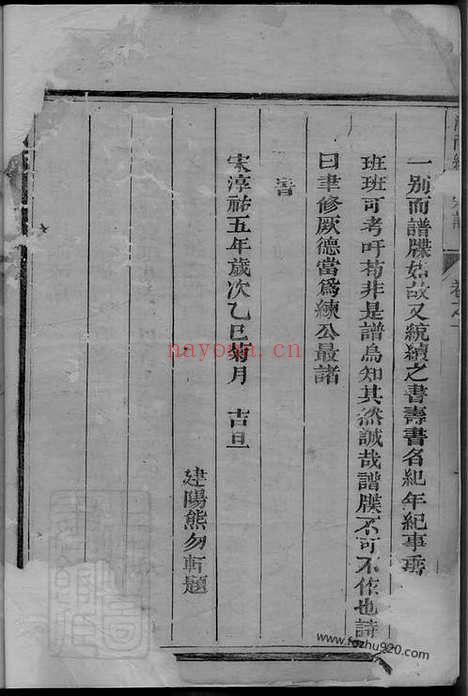 一別而譜牒如故又統續之書壽書名紀年紀事
班班可考吁苟非是譜烏知其然誠哉譜牒不可不作也詩
曰聿修厥德當為練公最諸
旹
宋淳祐五年歲次乙巳菊月 吉旦
建陽熊勿軒題
nayoan.cn
www.fozhu920.com